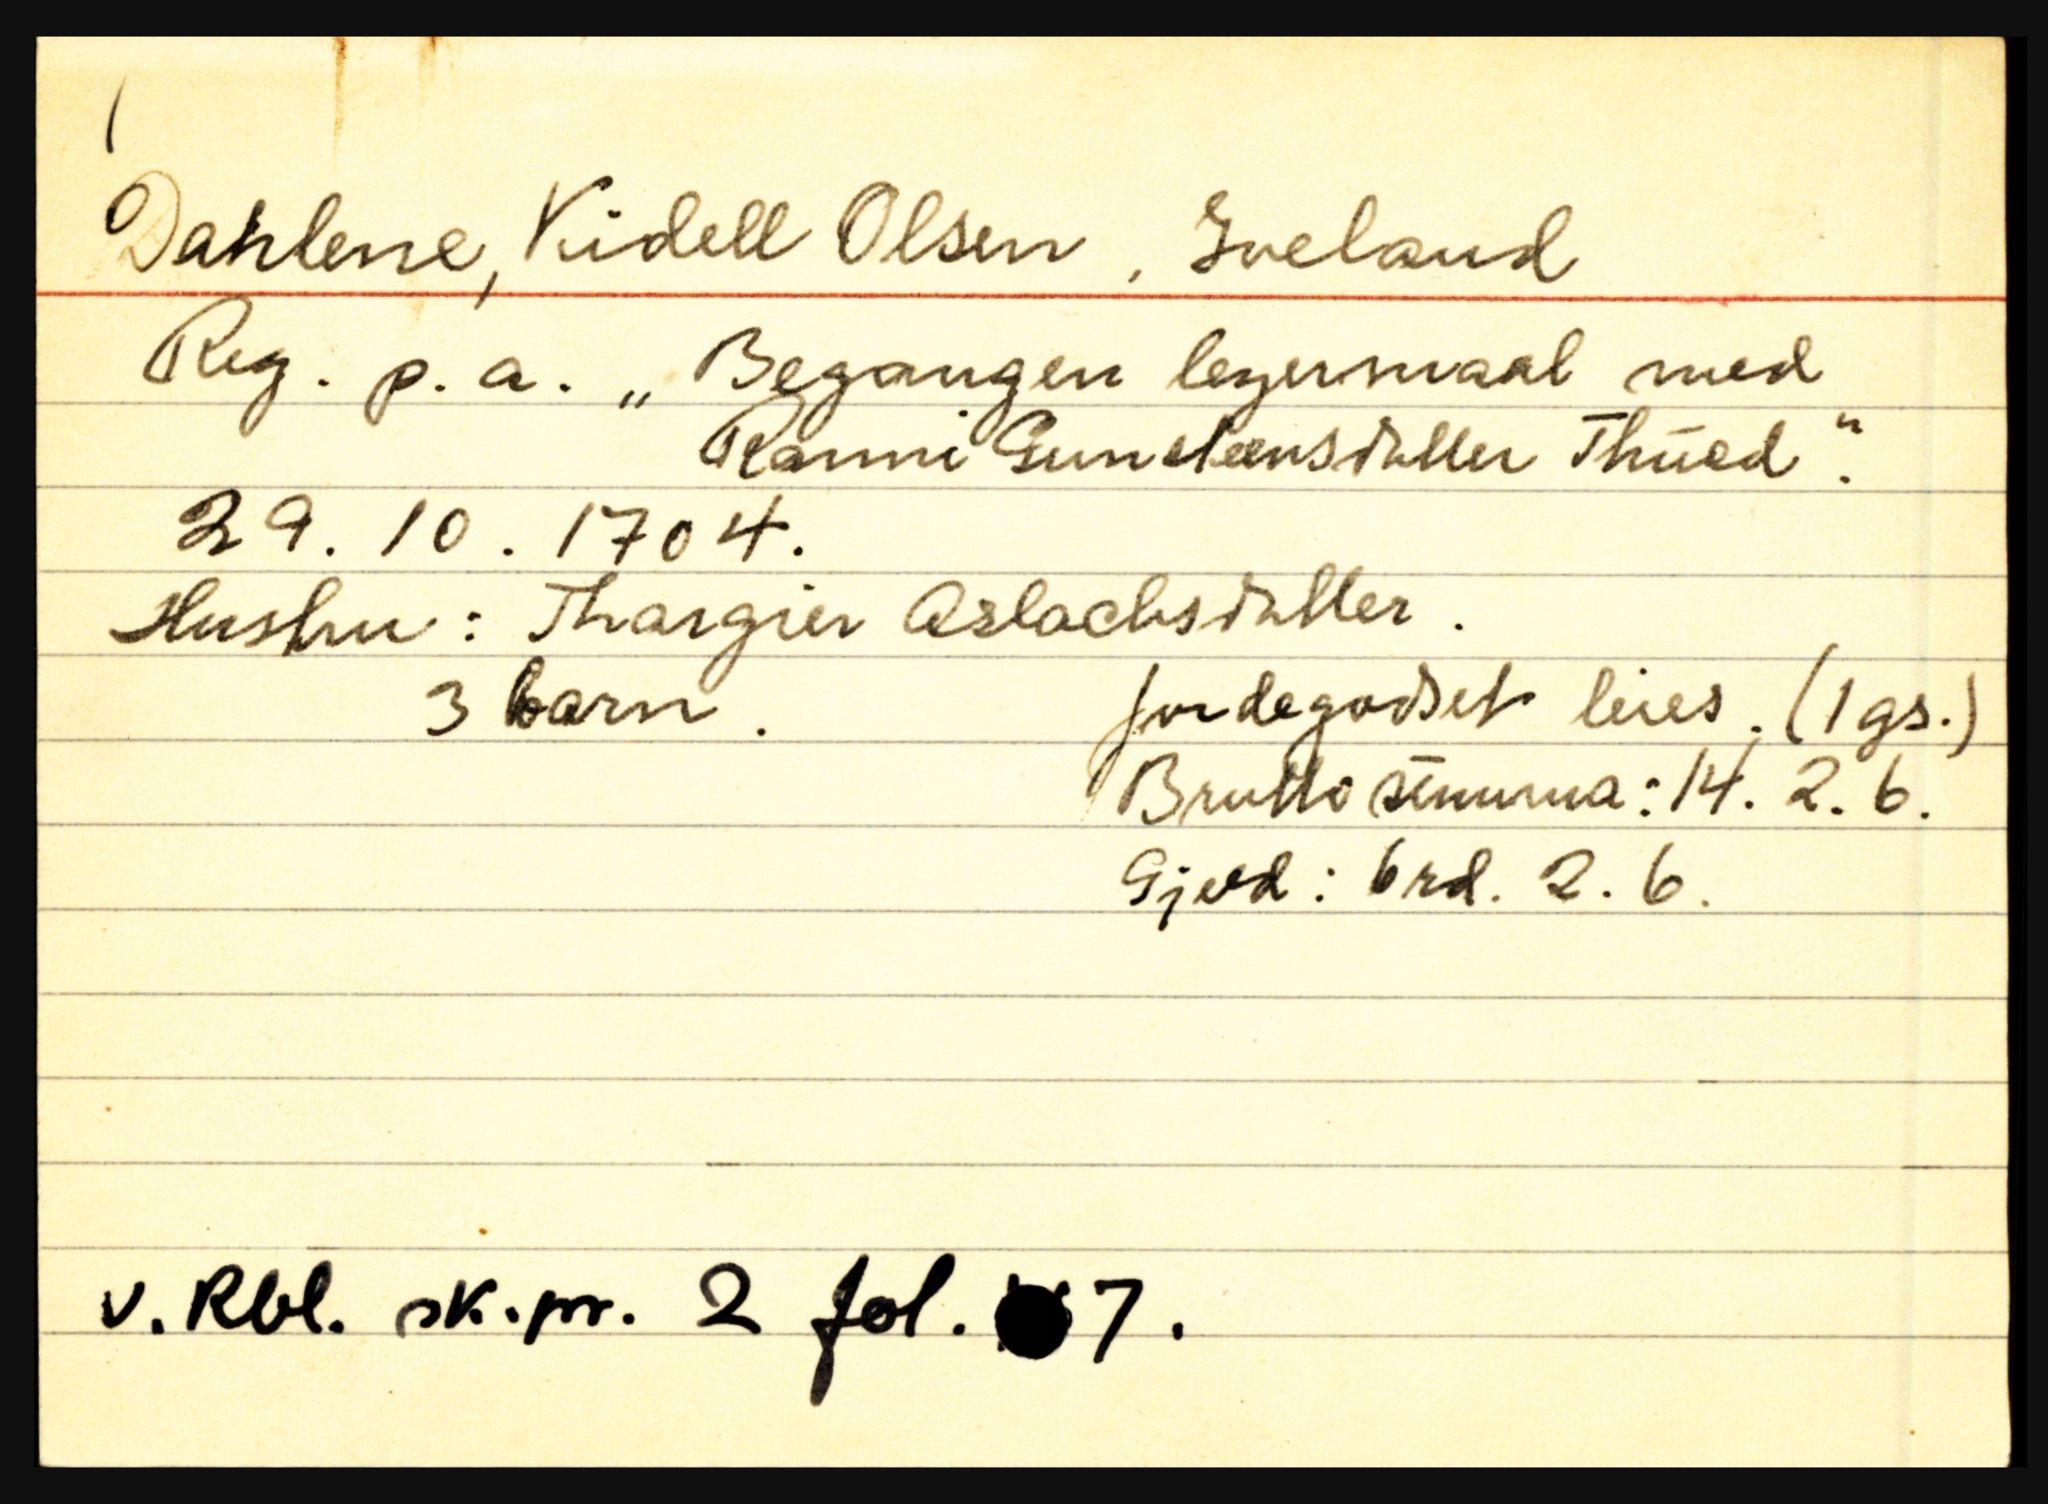 Dahlene, Kidell Olsen, Iveland
Reg. p. a. „Begangen leyermaal med
Ranni Gundersdatter Thued".
29. 10. 1704.
Hustru: Thargier Aslachsdatter.
3 barn.
Jordegodset leies. (1 gs.)
Brutto summa: 14. 2. 6.
Gjeld: 6 rd. 2. 6.
v. Rbl. sk.pr. 2 fol. 7.